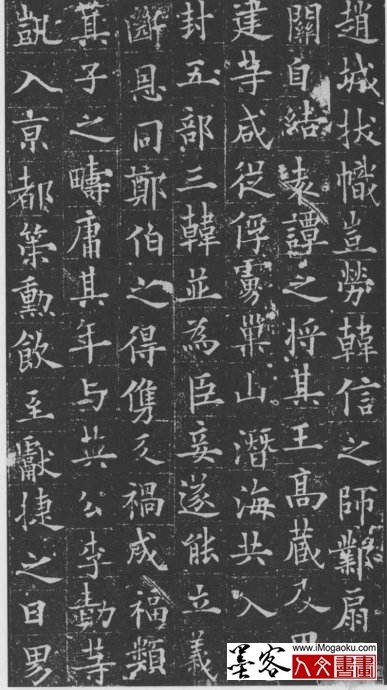 趙城拔幟豈勞韓信之師鄴扇
關自結袁譚之将其王髙藏及男
建等咸從俘虜巢山潛海共入
封五部三韓並為臣妾遂能立義
斷恩同鄭伯之得儁反禍成福類
箕子之疇庸其年与英公李勣等
凱入亰都策勳飲至獻捷之日男
www.iMogaoku.com
墨客
人文書畫